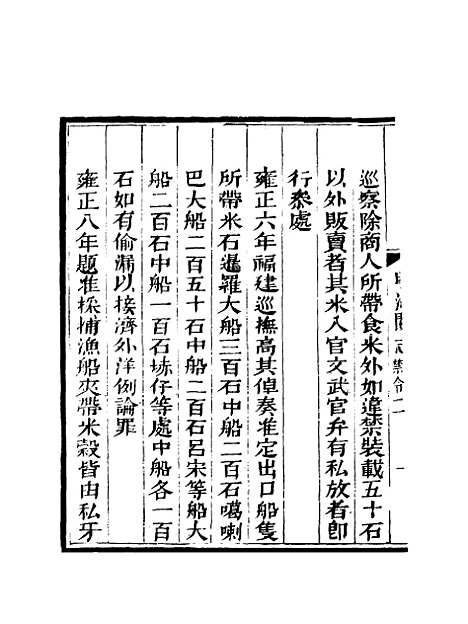 巡察除商人所帶食米外如違禁裝載五十石
以外販賣者其米入官文武官弁有私放者卽
行叅處
雍正六年福建巡撫高其倬奏准定出口船隻
所帶米石暹羅大船三百石中船二百石噶喇
巴大船二百五十石中船二百石呂宋等船大
船二百石中船一百石㙍仔等處中船各一百
石如有偷漏以接濟外洋例論罪
雍正八年題准採捕漁船夾帶米穀皆由私牙